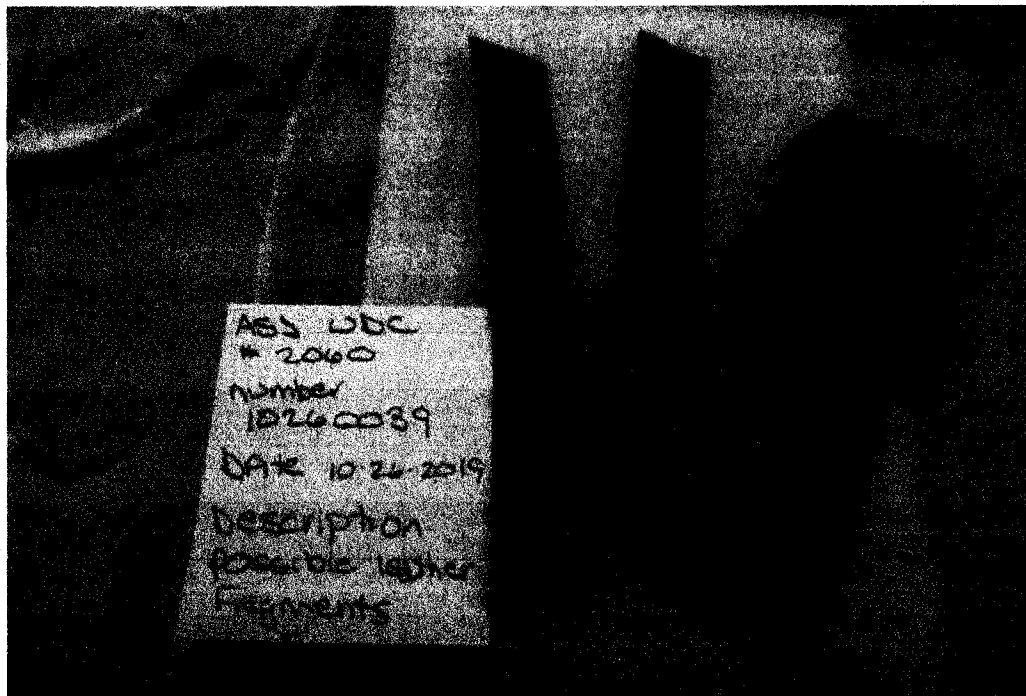 ASJ WDC
# 2060
number
10260039
DAte 10-26-2019
Description
Possible leather
Fragments